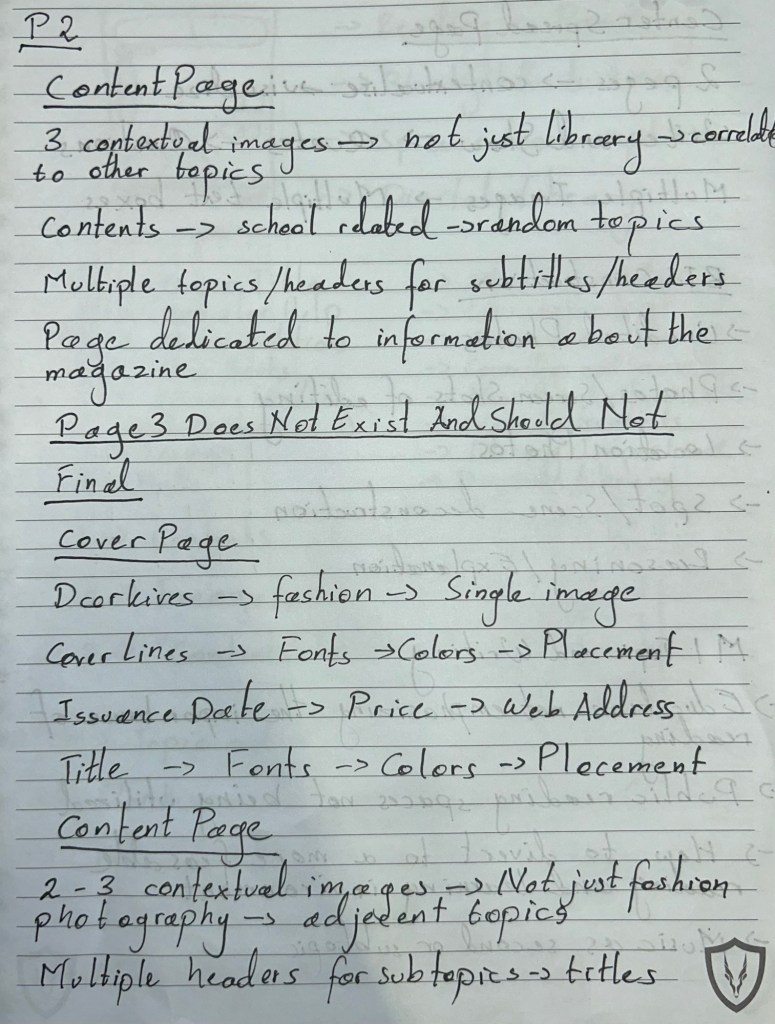 P 2
Content Page
3 contextual images -> not just library -> correlate
to other topics
Contents -> school related -> random topics
Multiple topics/headers for subtitles/headers
Page dedicated to information about the
magazine
Page 3 Does Not Exist And Should Not
Final
Cover Page
-> fashion -> Single image
Cover Lines -> Fonts -> Colors -> Placement
Issuance Date -> Price -> Web Address
Title -> Fonts -> Colors -> Placement
Content Page
2 - 3 contextual images -> Not just fashion
photography -> adjecent topics
Multiple headers for subtopics -> titles